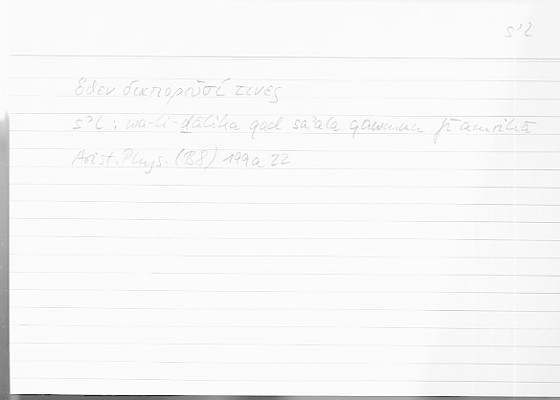 sʾl
ὅθεν διαποροῦσί τινες
sʾl : wa-li-ḏālika qad saʾala qawmun fī amrihā
Arist. Phys. (B8) 199a 22